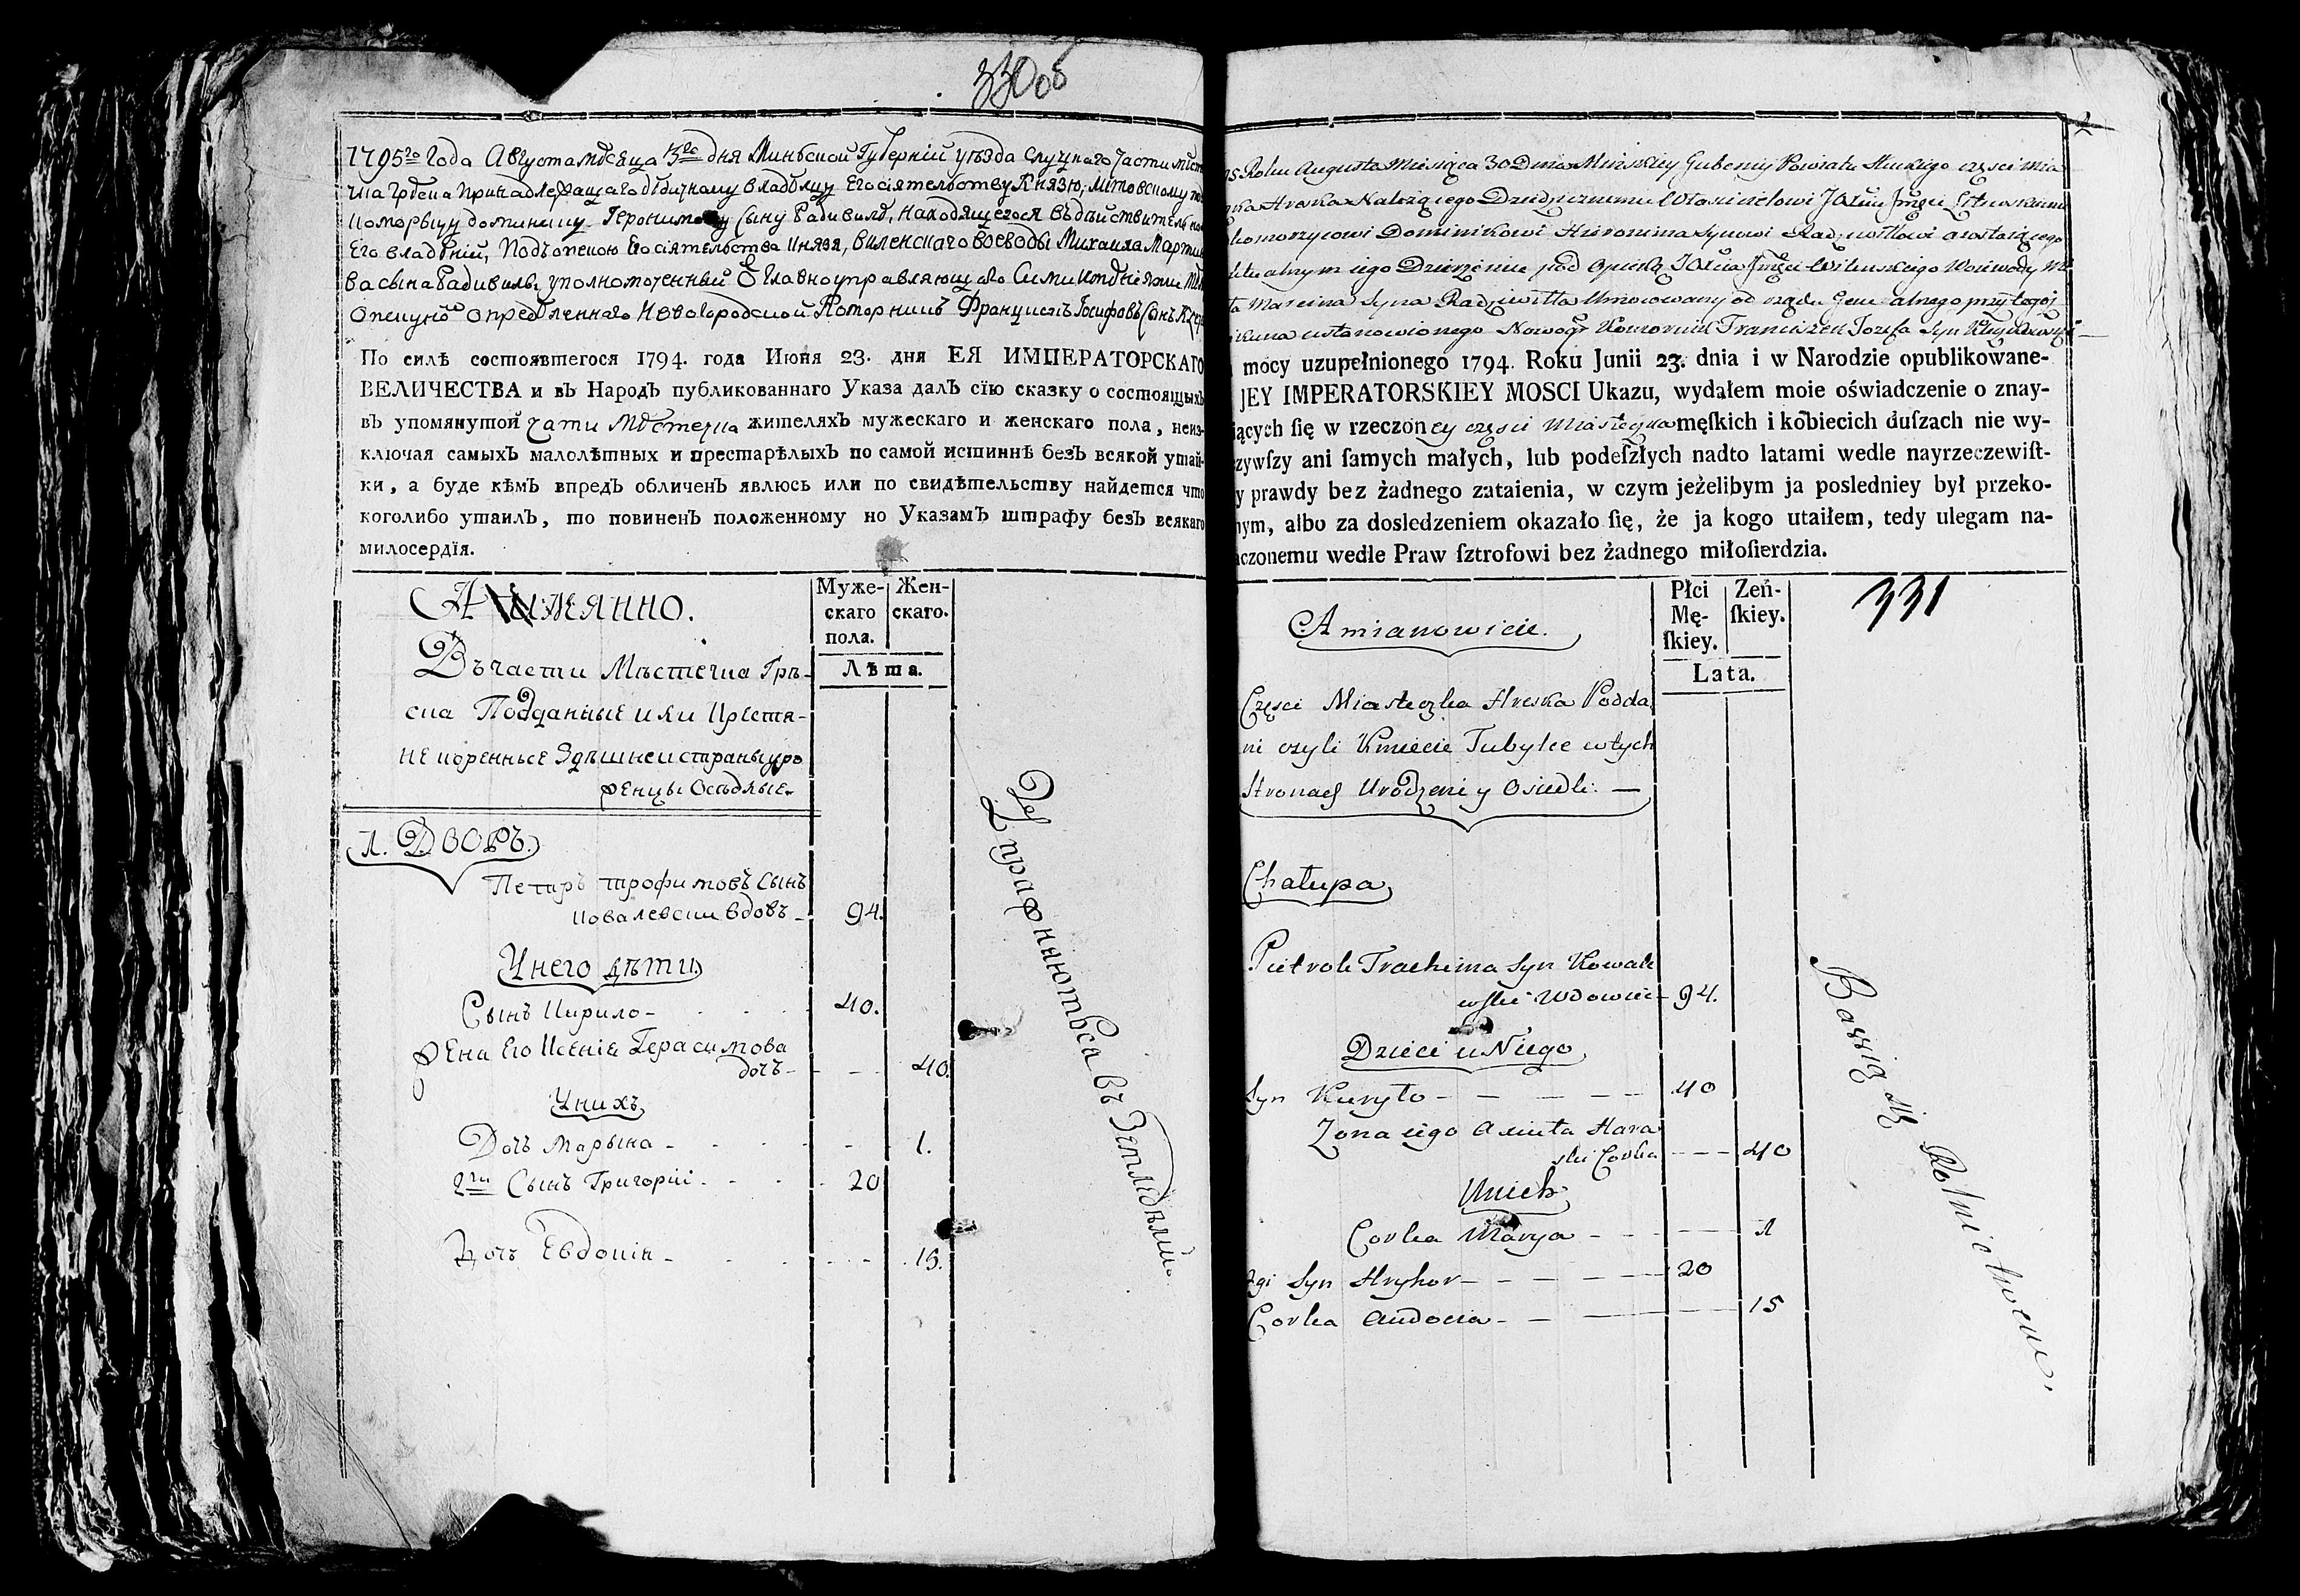 330об
1795го Года Августа мѣсяца 30го дня Минъской Губерніи уѣзда Случцкаго Части мѣст
чка Грѣска Принадлежащаго дѣдичному владѣлцу Его сіятельству Князю, Литовскому
Коморжицу доминику Геронимову Сыну Радивилѣ, Находящегося въ дѣиствителном
Его владѣніи, Подъ опекою Его сіятельства Князя, Виленскаго воеводы Михаила Марти
ва сына Радивила, уполномоченный
опекуномъ опредѣленнаго Новогородской Коморникъ Францискъ Іосифовъ Сынъ
По силѣ состоявшегося 1794. года Июня 23. дня ЕЯ ИМПЕРАТОРСКАГО
ВЕЛИЧЕСТВА и въ Народъ публикованнаго Указа далъ сїю сказку о состоящыхъ
въ упомянутой части мѣстечка жителяхъ мужескаго и женскаго пола, неиз-
ключая самыхъ малолѣтныхъ и престарѣлыхъ по самой истиннѣ безъ всякой утай-
ки, а буде кѣмъ впредъ обличенъ явлюсь или по свидѣтельству найдется что
коголибо утаилъ, то повиненъ положенному но Указамъ штрафу безъ всякаго
милосердїя.
А ИМЯННО.
Муже-
скаго
пола.
Жен-
скаго.
Лѣта.
Въ части Мѣстечка Грѣ-
ска Подданные или Крестя-
не коренные Здѣшнеи страны уро
женцы Осѣдлые.
1. ДВОРЪ.
Петръ трофимовъ Сынъ
Ковалевски вдовъ - 94.
У него дѣти
Сынъ Кирило - 40.
Жена Его Ксенія Герасимова
дочъ - 40.
У нихъ
Дочъ Марьяна - 1.
2ги Сынъ Григории - 20
Дочъ Евдокія - 15.
Упражняютьса въ Земледѣліи.
95 Roku Augusta Miesiąca 30 Dnia Mińskiey Gubernij Powiatu Słuckiego części Mia
zka Hreska Należącego Dziedzicznemu Własicielowi JOXciu Jmści Litewskiemu
komorzycowi Dominikowi Hieronima Synowi Radziwiłłowi a zostaiącego
ktualnym iego Dzierżeniu pod Opieką JOXcia Jmści Wileńskiego Woiewody Mi
ła Marcina Syna Radziwiłła Umocowany od rządu Generalnego przy tegoż
ekuna ustanowionego Nowogr Komornik Franciszek Jozefa Syn
mocy uzupełnionego 1794. Roku Junii 23. dnia i w Narodzie opublikowane-
JEY IMPERATORSKIEY MOSCI Ukazu, wydałem moie oświadczenie o znay-
iących ſię w rzeczoney części Miasteczka męſkich i kobiecich duſzach nie wy-
zywſzy ani ſamych małych, lub podeſzłych nadto latami wedle nayrzeczewiſt-
y prawdy bez żadnego zataienia, w czym jeżelibym ja posledniey był przeko-
nym, albo za dosledzeniem okazało ſię, że ja kogo utaiłem, tedy ulegam na-
aczonemu wedle Praw ſztrofowi bez żadnego miłoſierdzia.
A mianowicie.
Płci
Mę-
ſkiey.
Zeń-
ſkiey.
Lata.
331
Częsci Miasteczka Hreska Podda
ni czyli Kmiecie Tubylce w tych
Stronach Urodzeni y Osiedli. —
Chałupa
Pietrok Trachima Syn Kowale
wski Wdowiec - 94.
Dzieci u Niego
Syn Kuryło - 40
Zona iego Axiuta Hara
ski Corka - 40
U nich
Corka Marya - 1
2gi Syn Hryhor - 20
Corka Audocia - 15
Bawią się Rolnictwem.